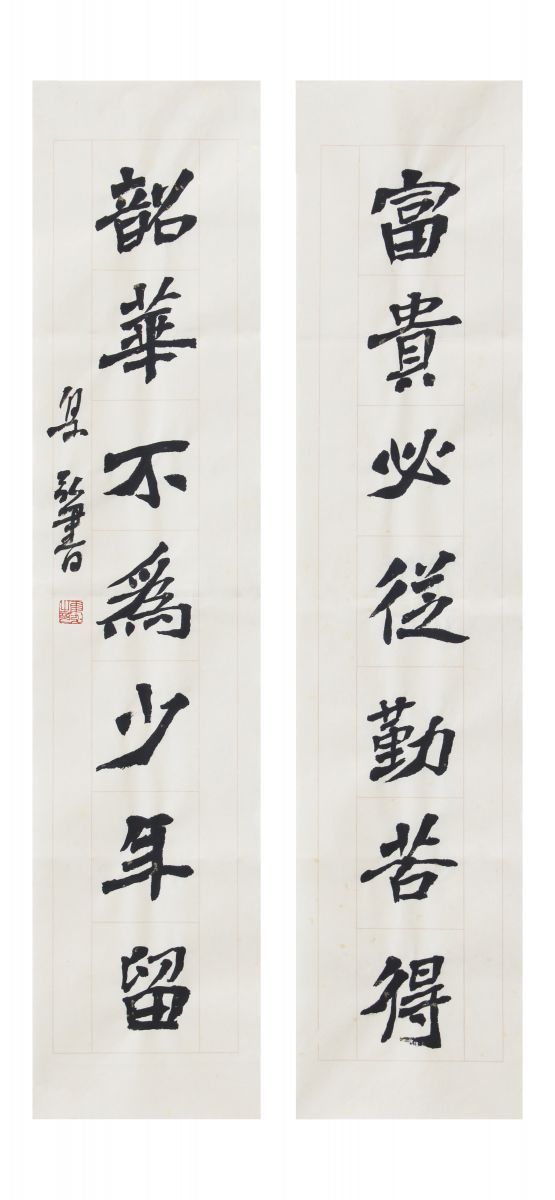 富貴必從勤苦得
韶華不為少年留